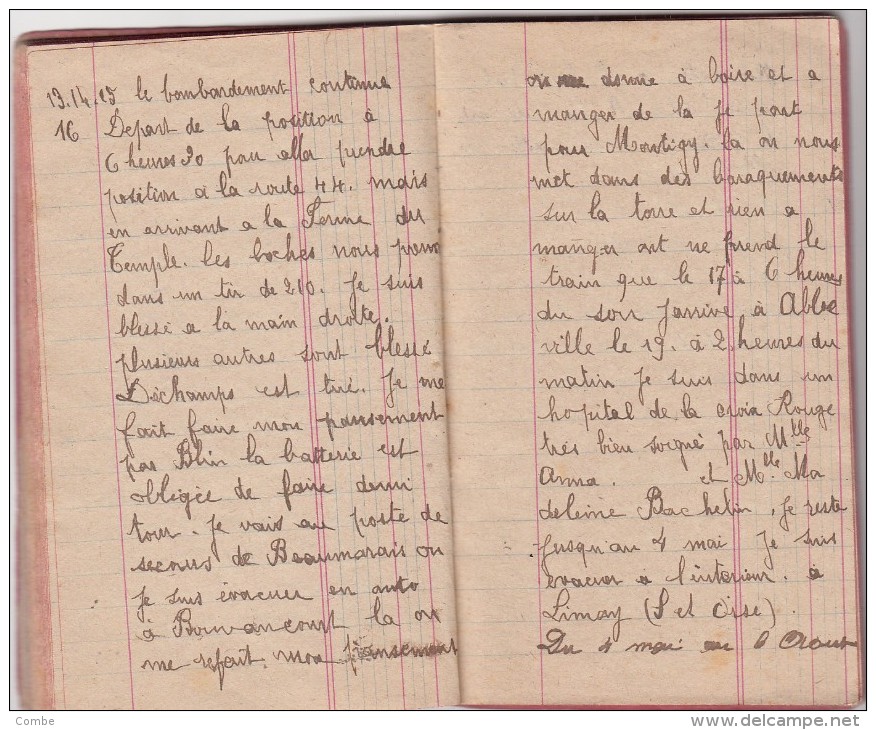 13.14.15 le bombardement continue
16 Depart de la position à
6 heures 30 pour aller prendre
position à la route 44. mais
en arrivant a la Ferme du
Temple. les boches nous prenn
dans un tir de 210. Je suis
blessé a la main droite.
plusieurs autres sont blessé
Déchamps est tué. Je me
fait faire mon pansement
par Blin la batterie est
obligée de faire demi
tour. Je vais au poste de
secours de Beaumarais ou
je suis évacuer en auto
à Bouvancourt la on
me refait mon pansement
on me donne à boire et a
manger de la je part
pour Montigy. la on nous
met dans des baraquements
sur la terre et rien a
manger ont ne prend le
train que le 17 à 6 heures
du soir J'arrive à Abbe
ville le 19. à 2 heures du
matin je suis dans un
hopital de la croix Rouge
très bien soigné par Mlle
Anna. et Mlle Ma
deleine Bachelin, je reste
jusqu'au 4 mai Je suis
évacuer à l'interieur. à
Limay (S et Oise).
Du 4 mai au 6 Aout
Combe
www.delcampe.net